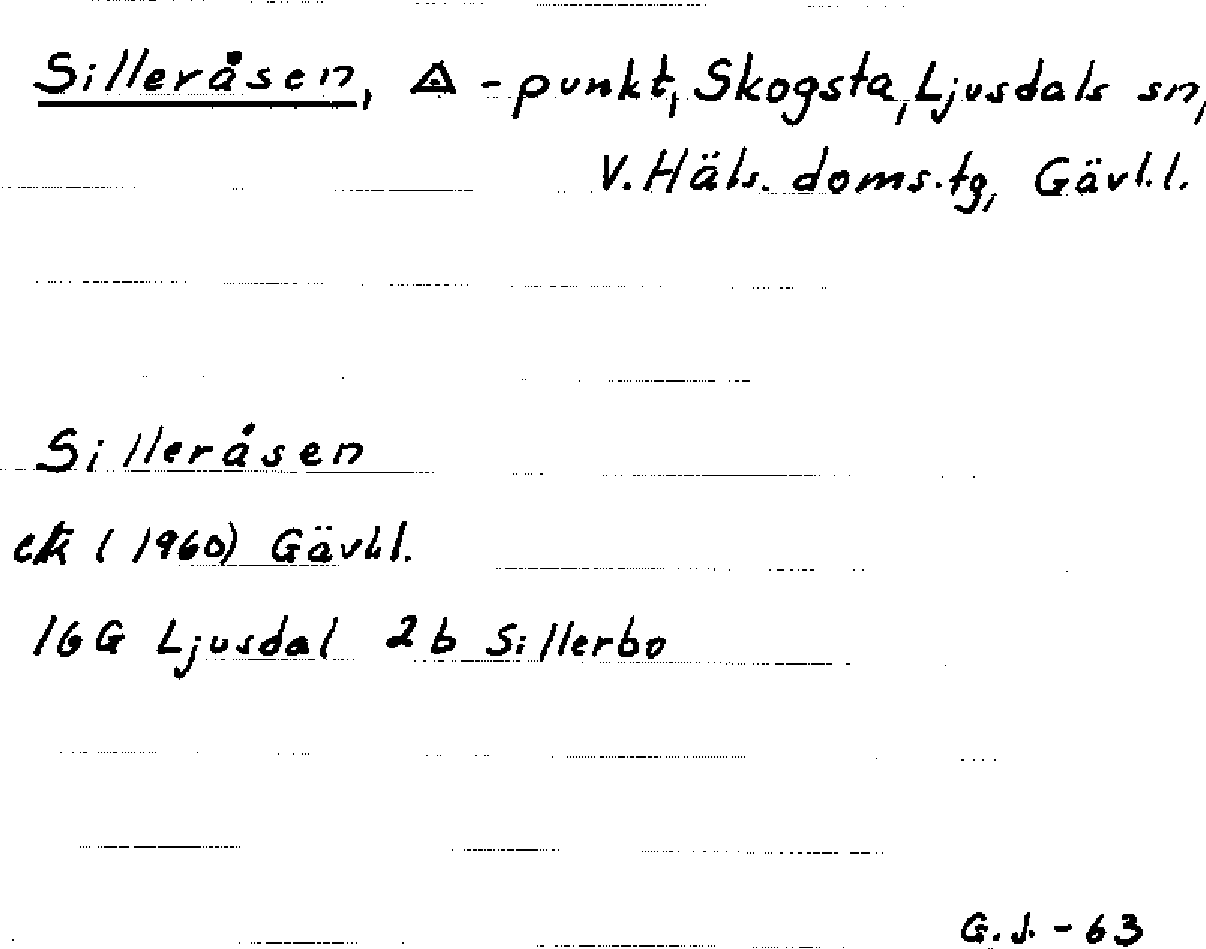 Silleråsen, △ -punkt, Skogsta, Ljusdals sn,
V. Häls. doms.tg, Gävl.l.
Silleråsen
ek (1960) Gävl.l.
16G Ljusdal 2b Sillerbo
G.J. - 63